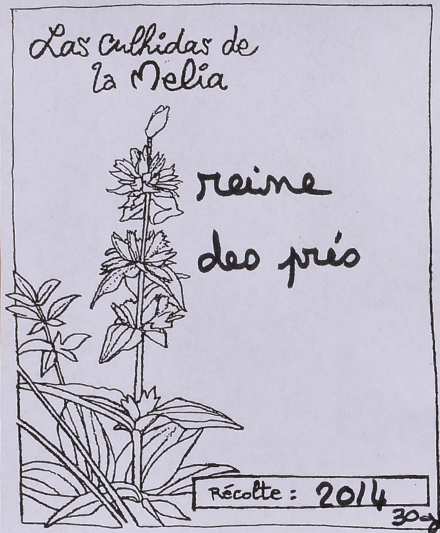 Las Culhidas de
la Melia
reine
des prés
Récolte : 2014
30g